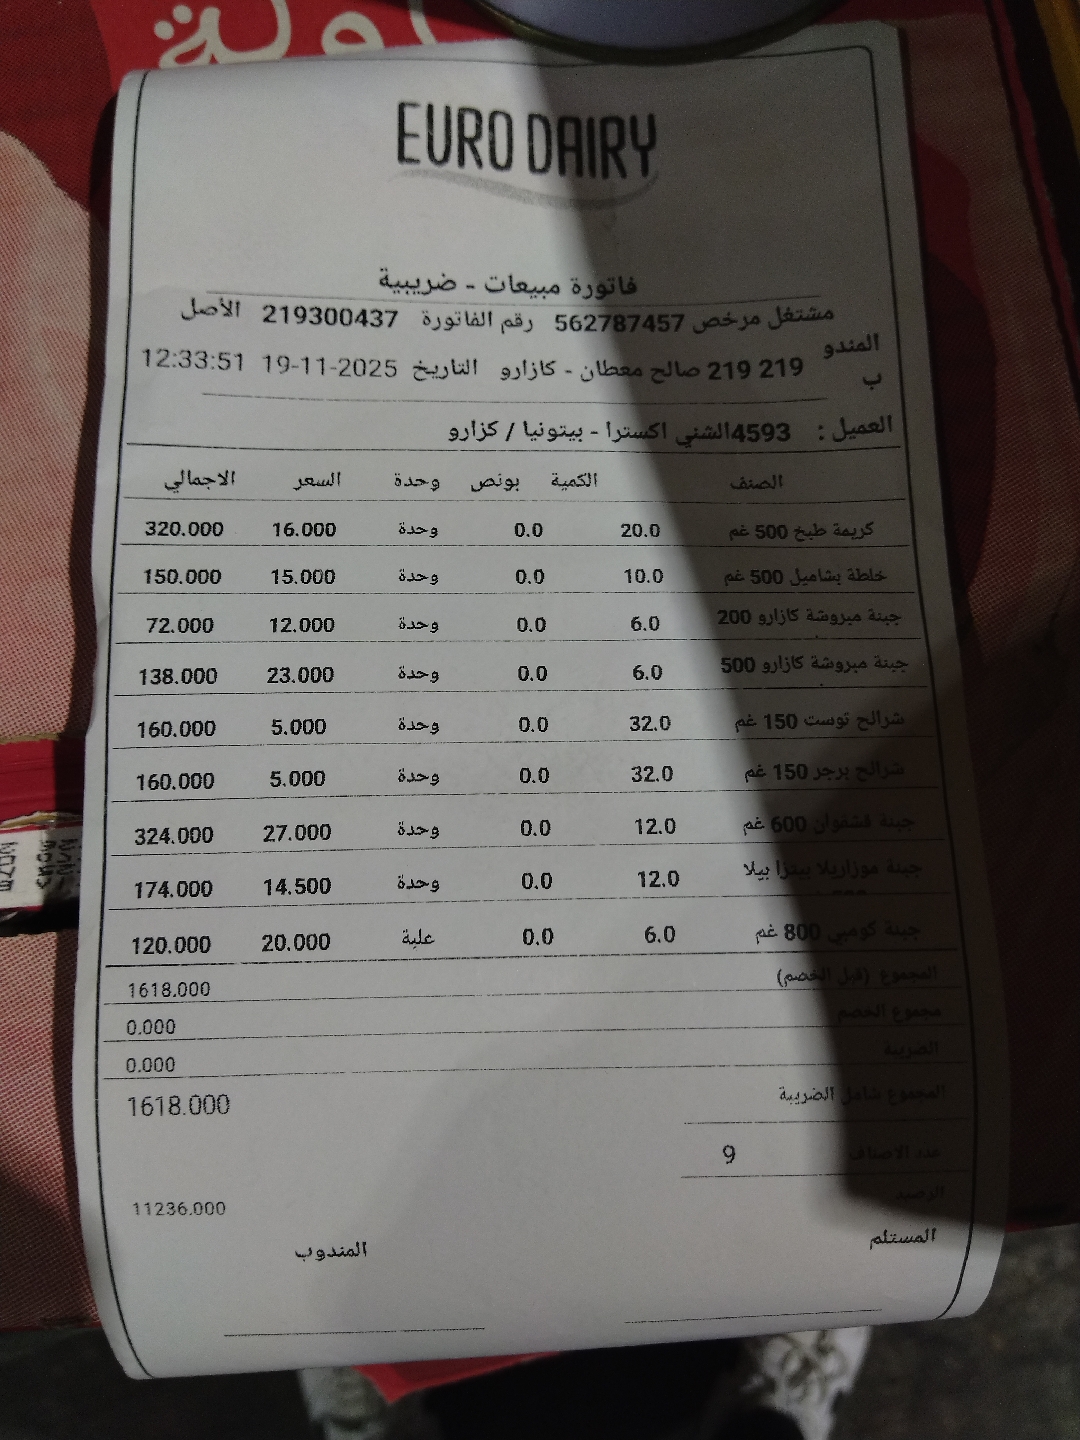 EURO DAIRY
فاتورة مبيعات - ضريبية
مشتغل مرخص 562787457 رقم الفاتورة 219300437 الأصل
المندوب 219 219 صالح معطان - كازارو التاريخ 19-11-2025 12:33:51
العميل : 4593الشني اكسترا - بيتونيا / كزارو
الصنف الكمية بونص وحدة السعر الاجمالي
كريمة طبخ 500 غم 20.0 0.0 وحدة 16.000 320.000
خلطة بشاميل 500 غم 10.0 0.0 وحدة 15.000 150.000
جبنة مبروشة كازارو 200 6.0 0.0 وحدة 12.000 72.000
جبنة مبروشة كازارو 500 6.0 0.0 وحدة 23.000 138.000
شرائح توست 150 غم 32.0 0.0 وحدة 5.000 160.000
شرائح برجر 150 غم 32.0 0.0 وحدة 5.000 160.000
جبنة قشقوان 600 غم 12.0 0.0 وحدة 27.000 324.000
جبنة موزاريلا بيتزا بيلا 12.0 0.0 وحدة 14.500 174.000
جبنة كومبي 800 غم 6.0 0.0 علبة 20.000 120.000
المجموع (قبل الخصم) 1618.000
مجموع الخصم 0.000
الضريبة 0.000
المجموع شامل الضريبة 1618.000
عدد الاصناف 9
الرصيد 11236.000
المستلم المندوب